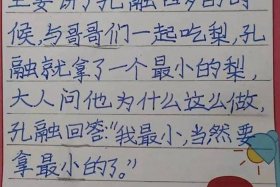 主要讲了孔融四岁的时
候，与哥哥们一起吃梨，孔
融就拿了一个最小的梨，
大人问他为什么这么做，
孔融回答：“我最小，当然要
拿最小的了。”